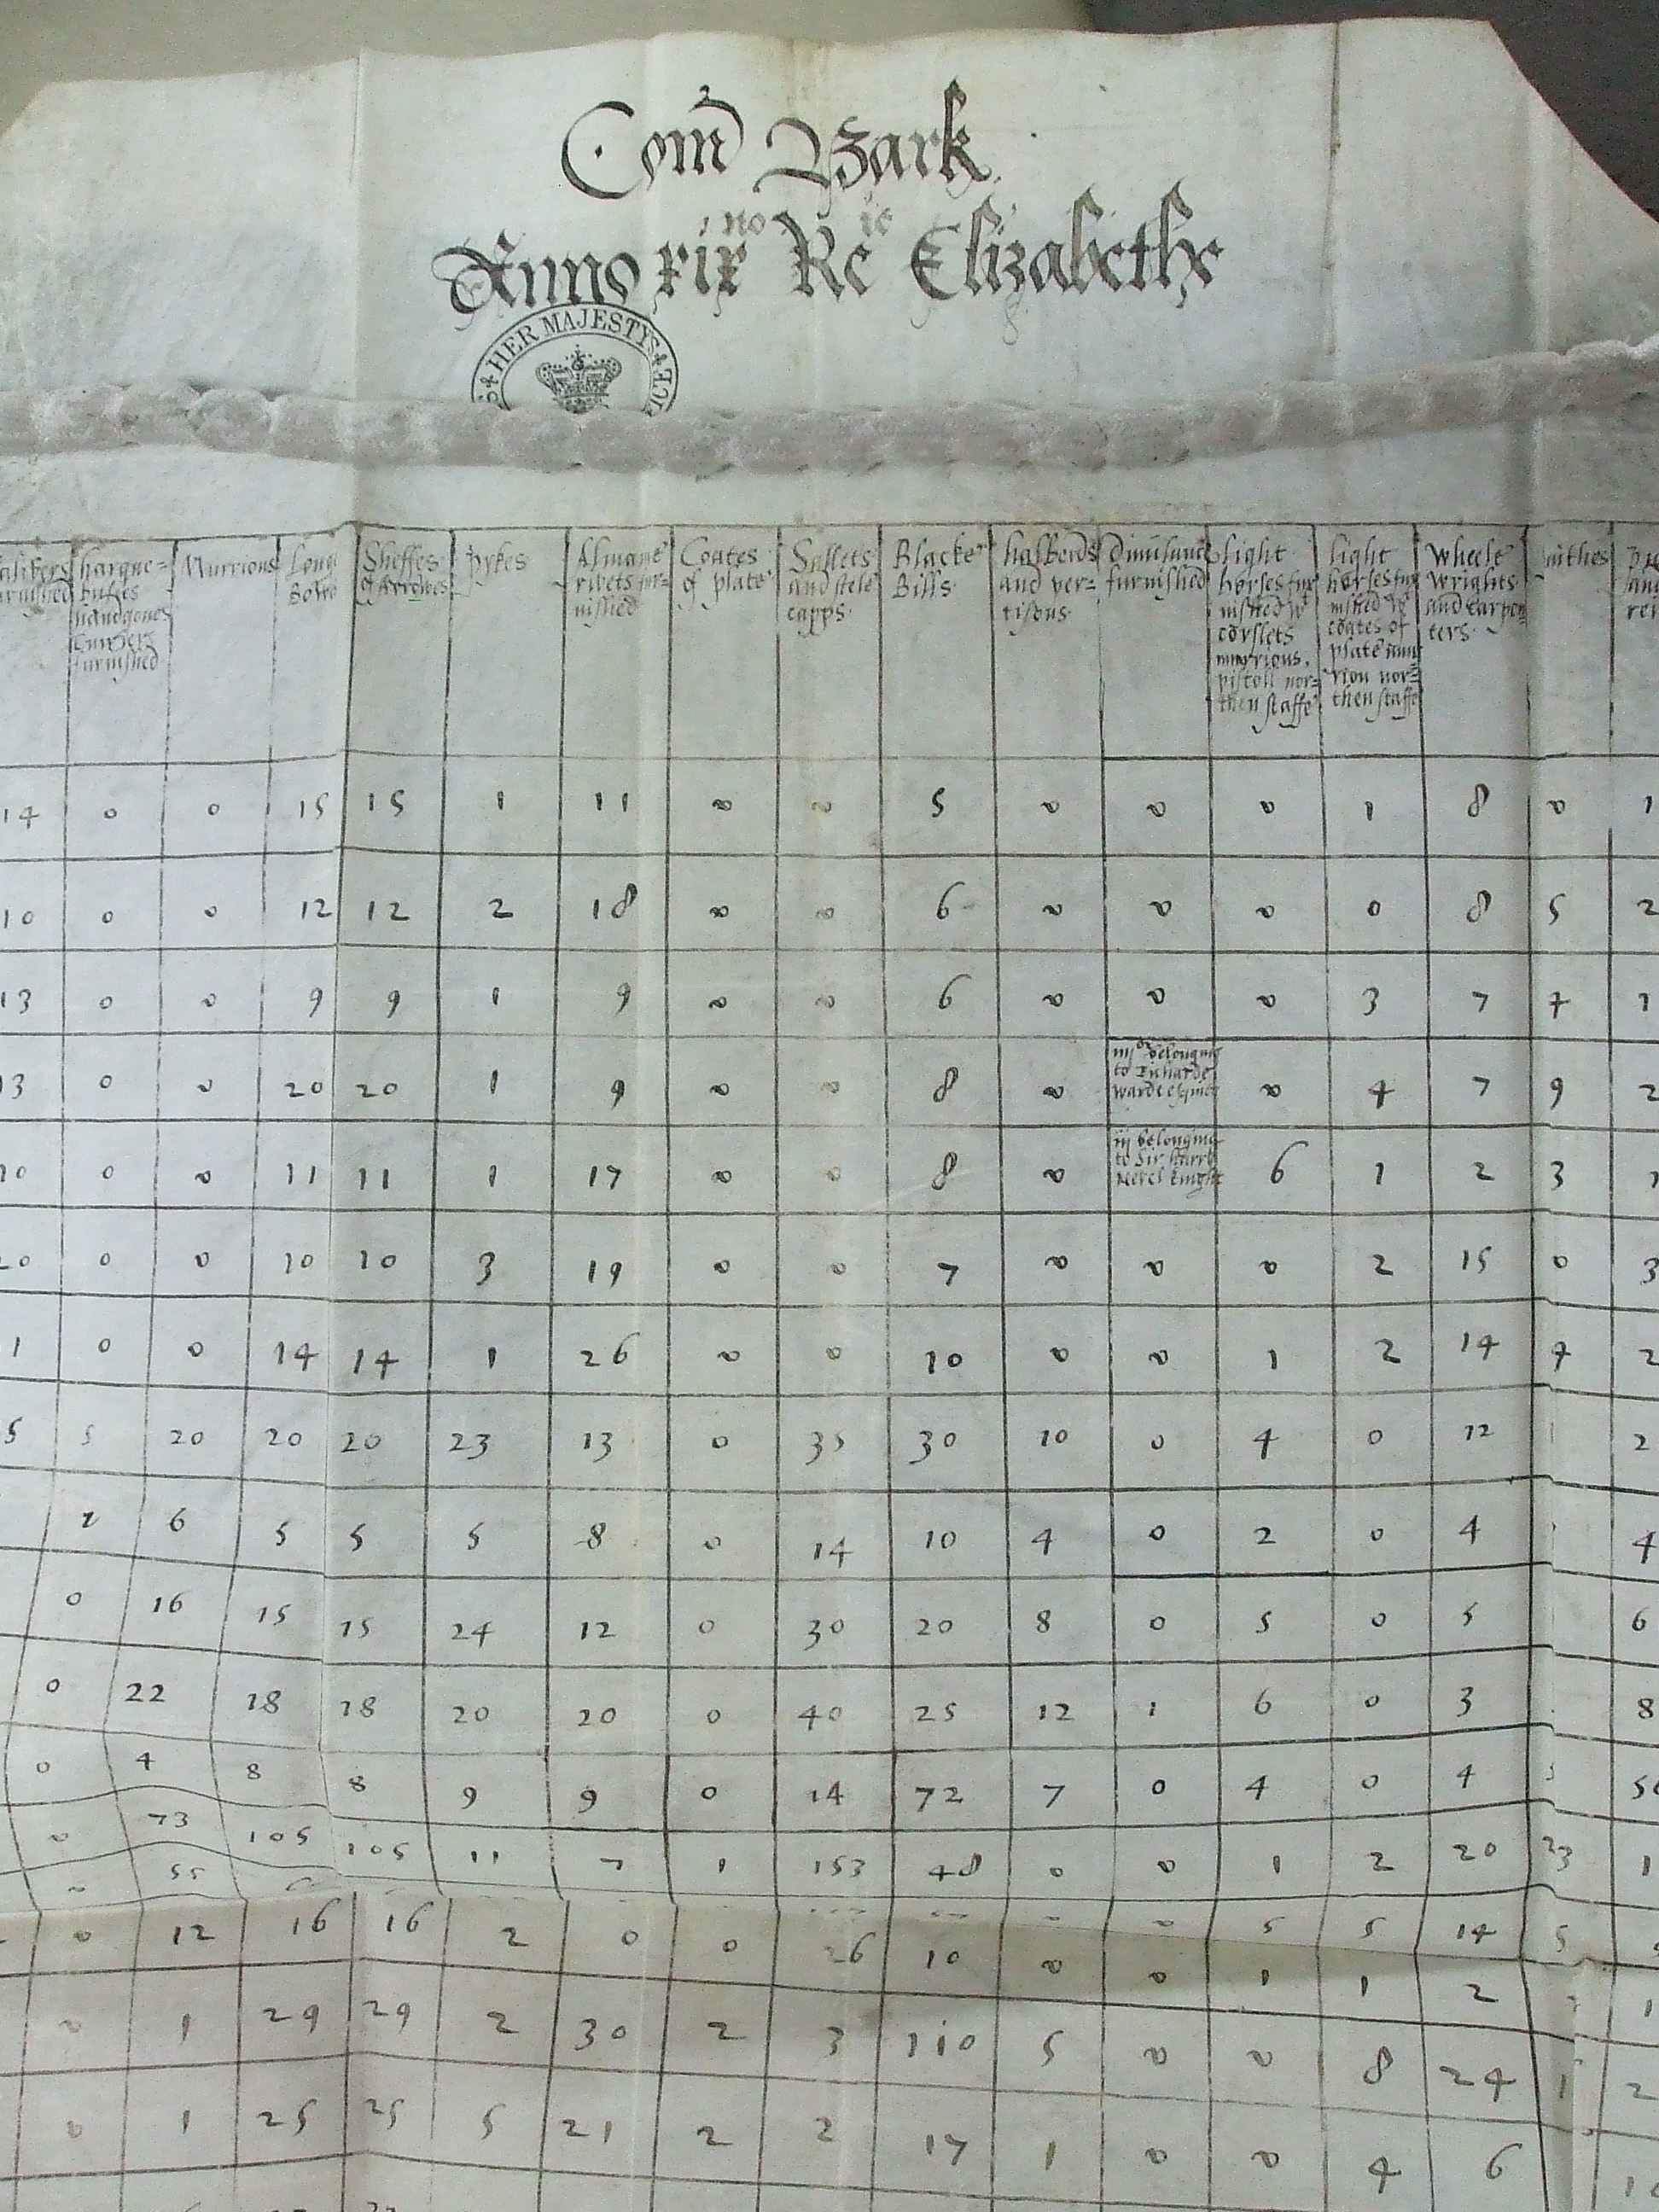 Com Bark
Anno xix no Re ie Elizabethe
HER MAJESTYS
harque= busses handgones Curriers furnished
Murrions
Longe Bowes
Sheffes of Arrowes
Pykes
Almane rivets fur= nished
Coates of plate
Sallets and stele capps
Blacke Bills
halberds and per= tisons
Dimilance furnished
light horses fur nished wt corslets murrions pistoll nor= then staffe
light horses fur nished wt coates of plate mur rion nor= then staffe
Wheele wrights and Carpen= ters
14 0 0 15 15 1 11 0 0 5 0 0 0 1 8 0 1
10 0 0 12 12 2 18 0 0 6 0 0 0 0 8 5 2
13 0 0 9 9 1 9 0 0 6 0 0 0 3 7 4 1
13 0 0 20 20 1 9 0 0 8 0 iiijor belonging to Richarde Warde esquier 0 4 7 9 2
10 0 0 11 11 1 17 0 0 8 0 iij belonging to Sir Harry Nevel knight 6 1 2 3
0 0 10 10 3 19 0 0 7 0 0 0 2 15 0 3
1 0 0 14 14 1 26 0 0 10 0 0 1 2 14 4 2
5 5 20 20 20 23 13 0 35 30 10 0 4 0 12 2
2 6 5 5 5 8 0 14 10 4 0 2 0 4 4
0 16 15 15 24 12 0 30 20 8 0 5 0 5 6
0 22 18 18 20 20 0 40 25 12 1 6 0 3 8
0 4 8 8 9 9 0 14 72 7 0 4 0 4
0 73 105 105 11 7 1 153 48 0 0 1 2 20 23 1
55 5 5 14 5
0 12 16 16 2 0 0 26 10 0 0 1 1 2 1
0 1 29 29 2 30 2 3 110 5 0 0 8 24 1 2
0 1 25 25 5 21 2 2 17 1 0 0 4 6